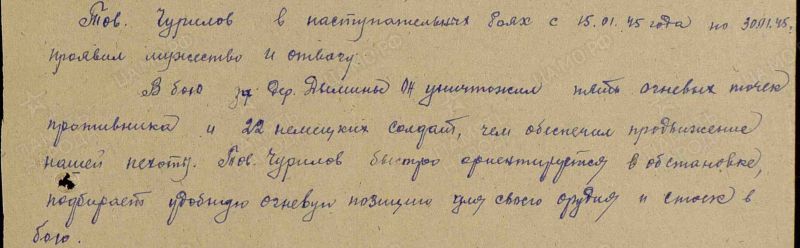 Тов. Чурилов в наступательных боях с 15.01.45 года по 30.01.45г.
проявил мужество и отвагу.
В бою за дер. Дымины он уничтожил пять огневых точек
противника и 22 немецких солдат, чем обеспечил продвижение
нашей пехоты. Тов. Чурилов быстро ориентируется в обстановке,
подбирает удобную огневую позицию для своего орудия и стоек в
бою.